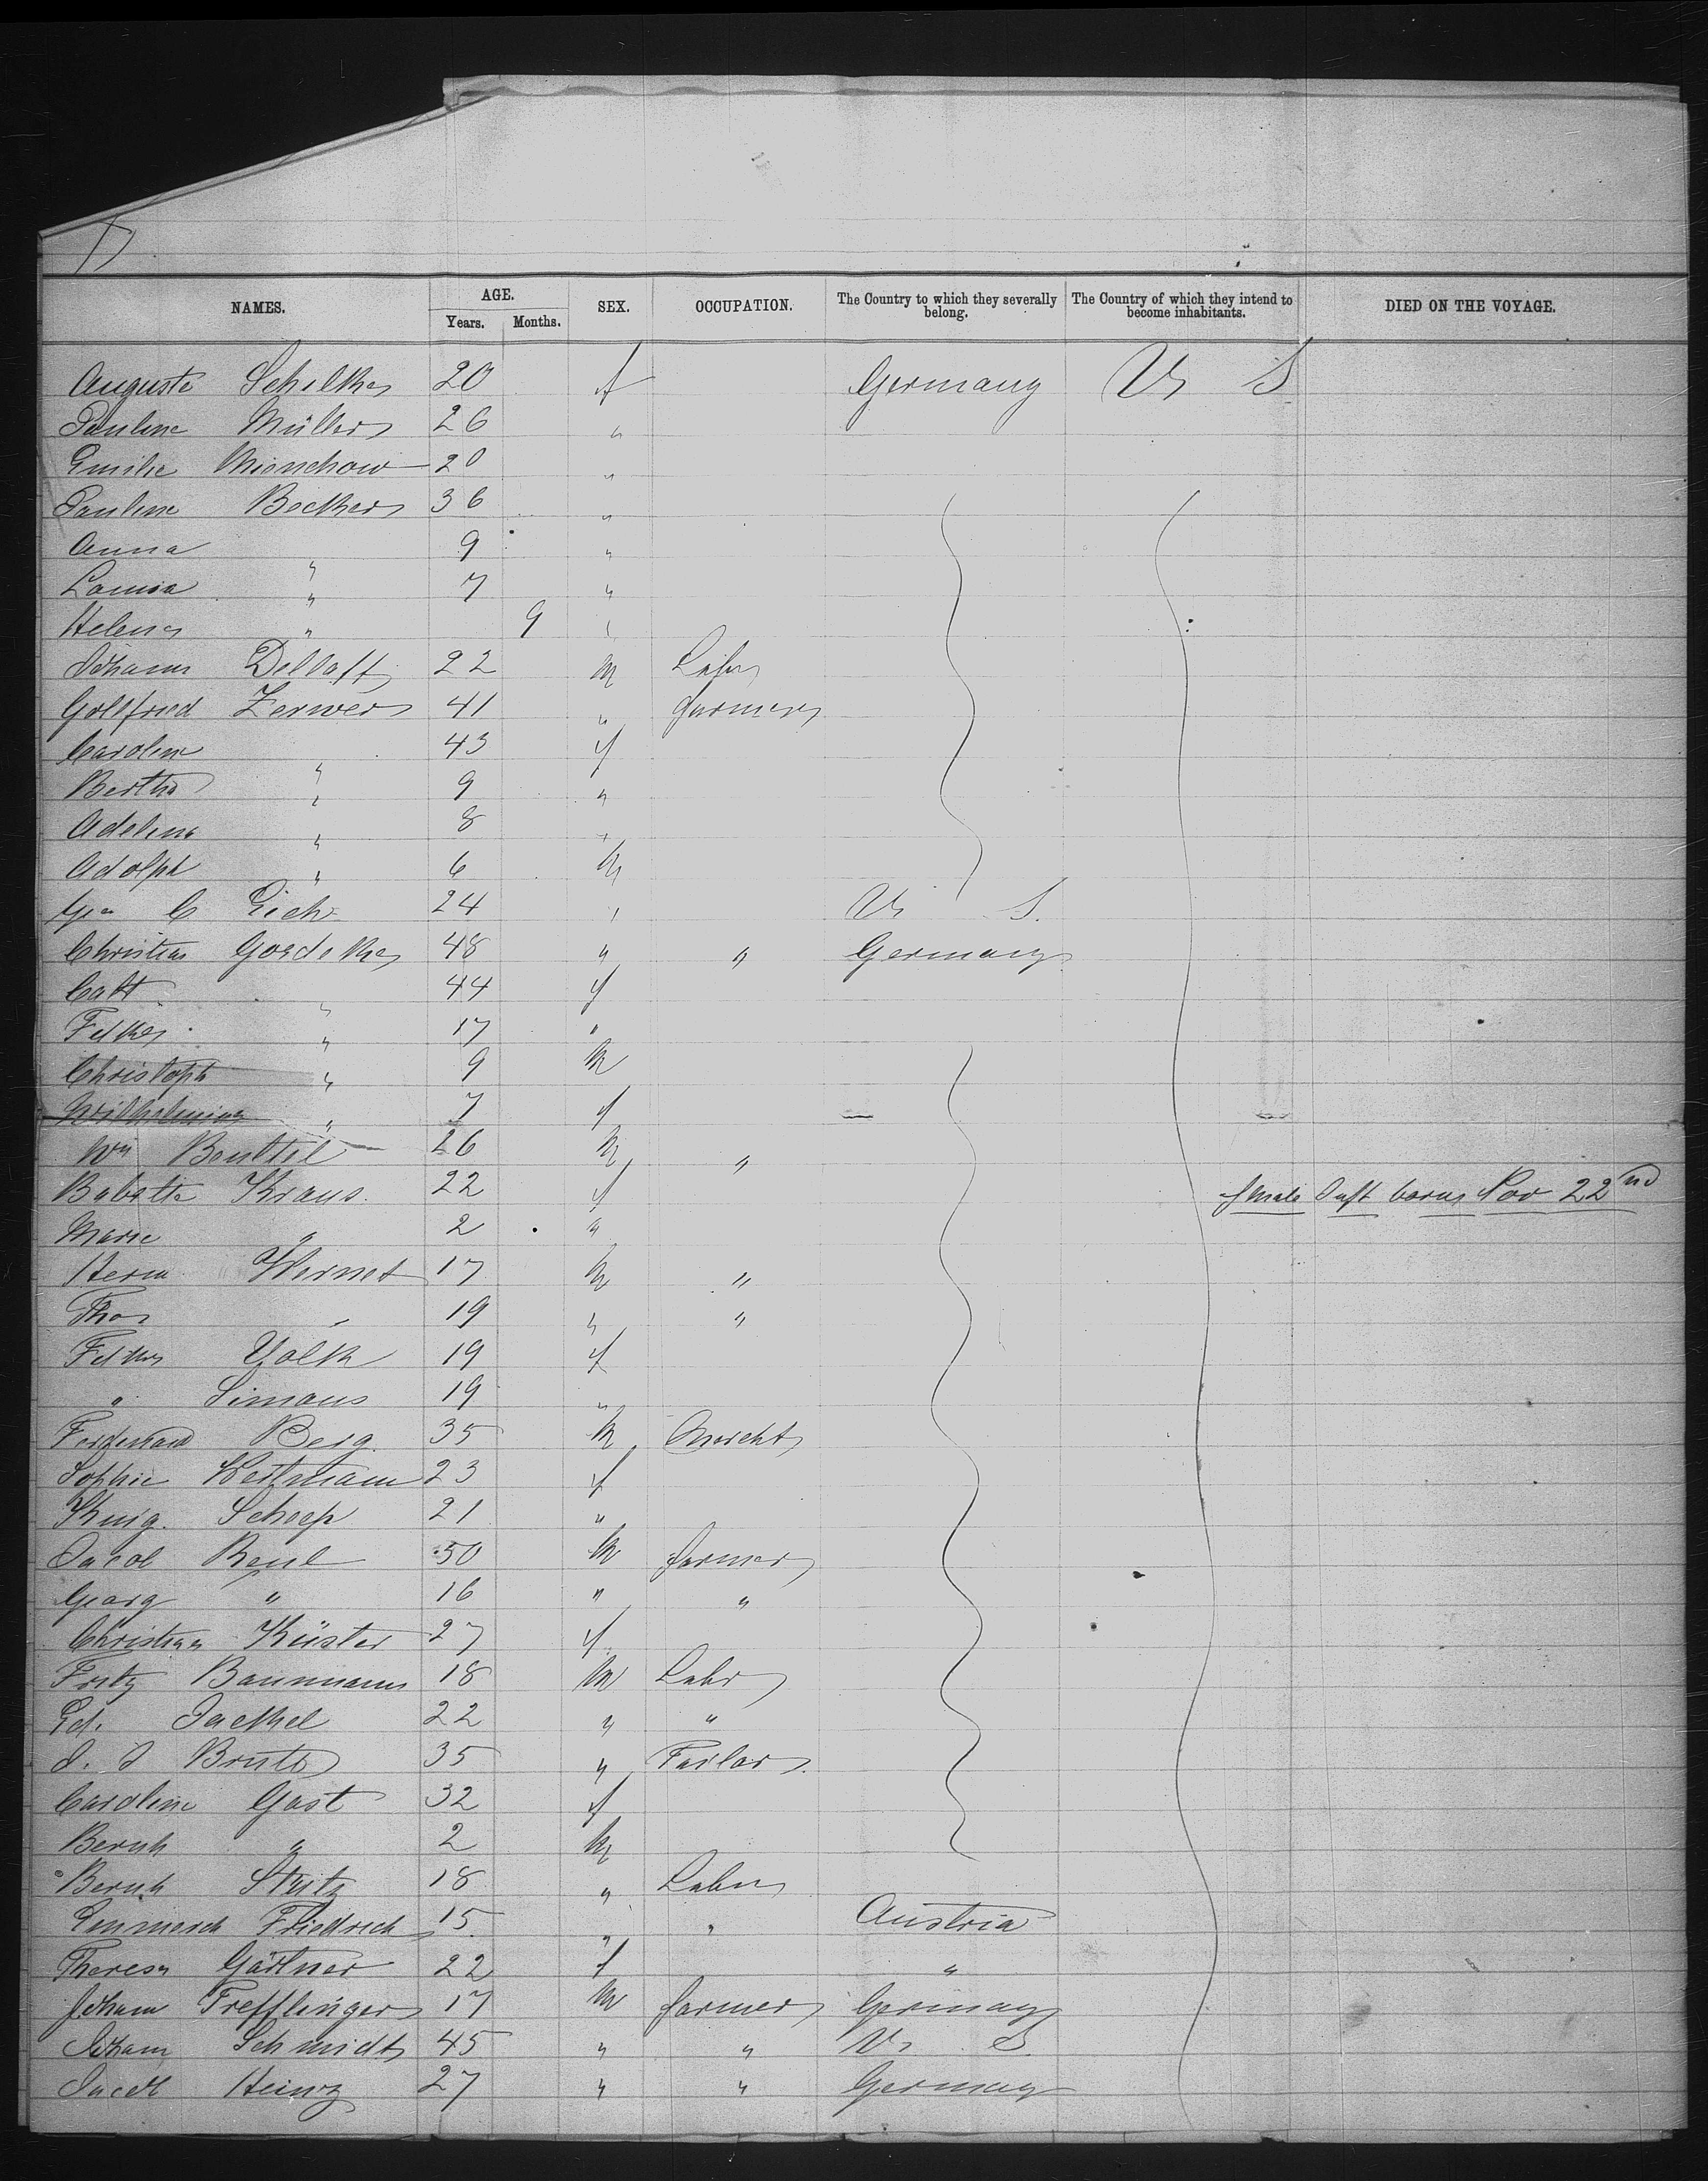 NAMES. AGE. SEX. OCCUPATION. The Country to which they severally belong. The Country of which they intend to become inhabitants. DIED ON THE VOYAGE.
Years. Months.
Auguste Schilke 20 f Germany U S
Pauline Müller 26 "
Emilie Mienchow 20 "
Pauline Becker 36 "
Anna " 9 "
Louisa " 7 "
Helena " 9 "
Johann 22 M Labr
Gottfried Zerwer 41 " farmer
Caroline " 43 f
Bertha " 9 "
Adeline " 8 "
Adolph " 6 M
Geo C Eich 24 " U S.
Christian Goedeke 48 " " Germany
Cath " 44 f
" 17 "
Christoph " 9 M
Wilhelmina " 7 f
Wm Beuttel 26 M "
Babette Kraus. 22 f female born Nov 22nd
Marie " 2 "
Herm Wernet 17 M "
Thos " 19 " "
Volk 19 f
" Simons 19 "
Ferdinand Berg. 35 M Mercht
Sophie 23 f
Schoep 21 "
Jacob Beul 50 M farmer
Georg " 16 " "
Christian Küster 27 f
Fritz Baumann 18 M Labr
Ed. Jackel 22 " "
Bruto 35 " Tailor
Caroline Gast 32 f
Bernh " 2 M
Bernh Stütz 18 " Labr
Emmerich Friedrich 15 " " Austria
Theresa Gärtner 22 f "
Johann Trefflinger 17 M farmer Germany
Johann Schmidt 45 " " U S.
Jacob Heinz 27 " " Germany